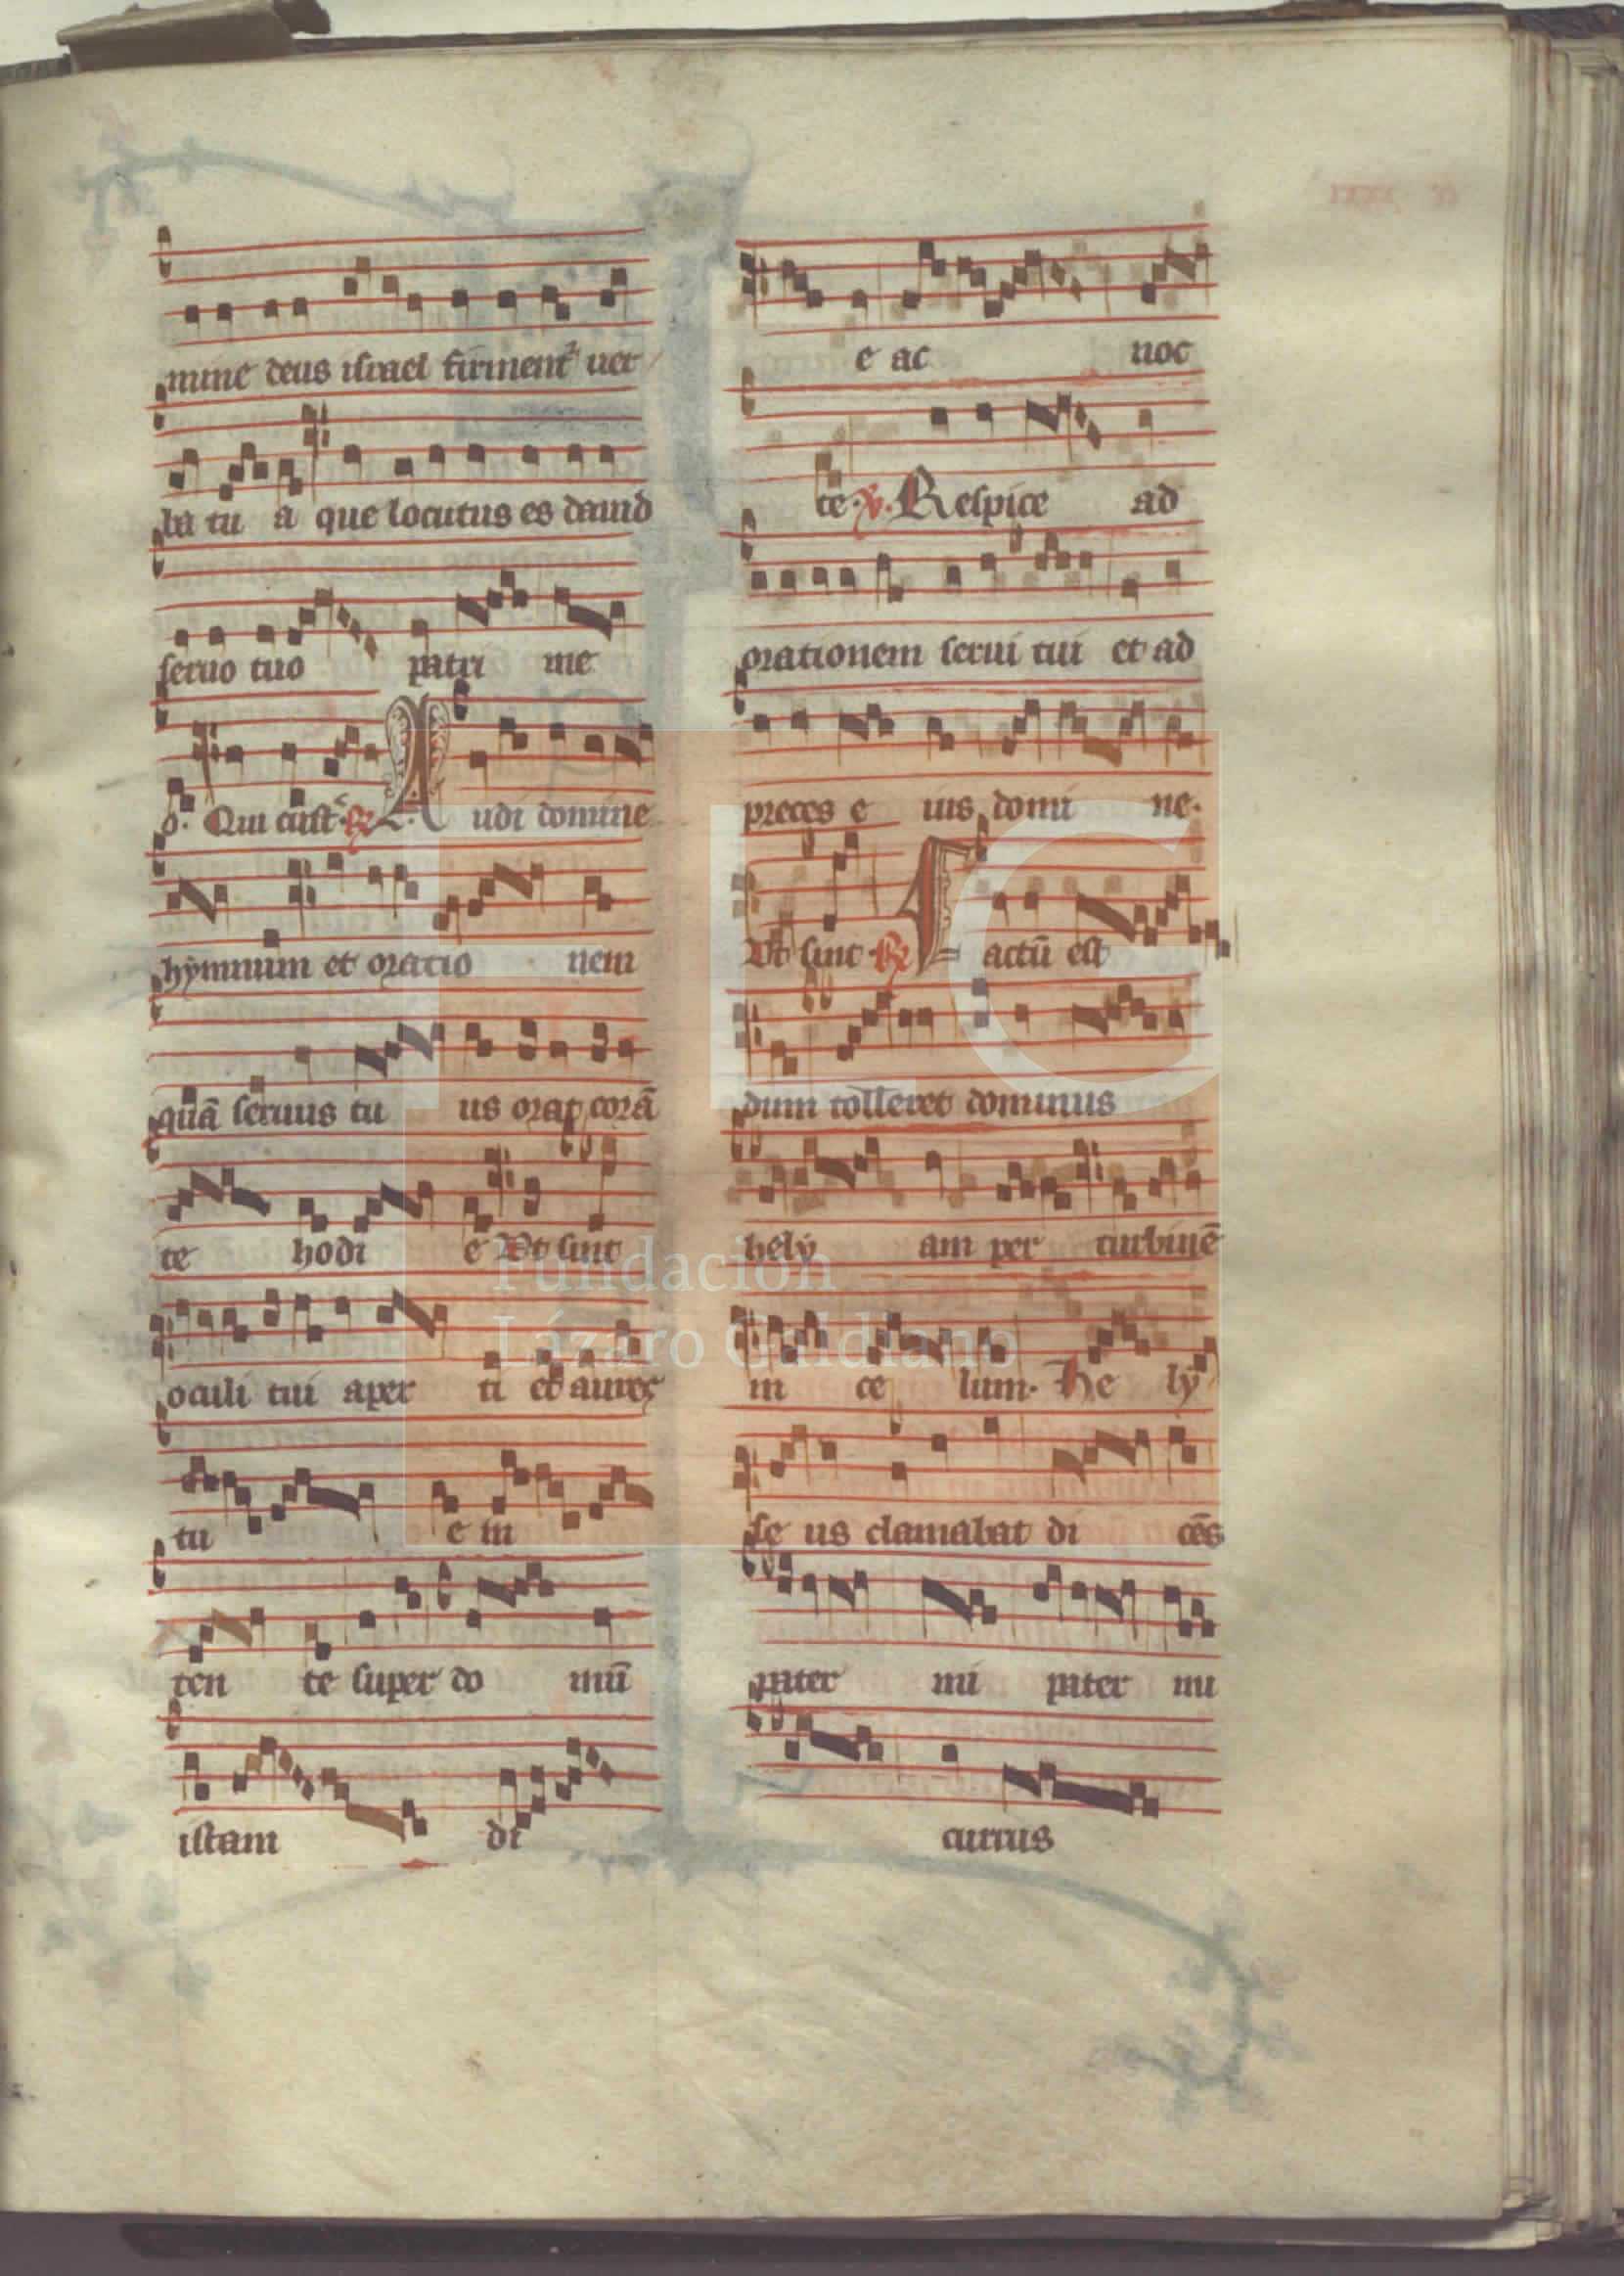 mine deus israel firment᷑ uer
ba tu a que locutus es dauid
seruo tuo patri me
o. Qui cust᷑. R. Audi domine
hymnum et oratio nem
quā seruus tu us orat corā
te hodi e Vt sint
oculi tui aper ti et aures
tu e in
ten te super do mū
istam di
e ac noc
te. V. Respice ad
orationem serui tui et ad
preces e ius domi ne.
Vt sint R. Factū est
dum tolleret dominus
hely am per turbinē
in ce lum. He ly
se us clamabat di cēs
pater mi pater mi
currus
FLG
Fundación
Lázaro Galdiano